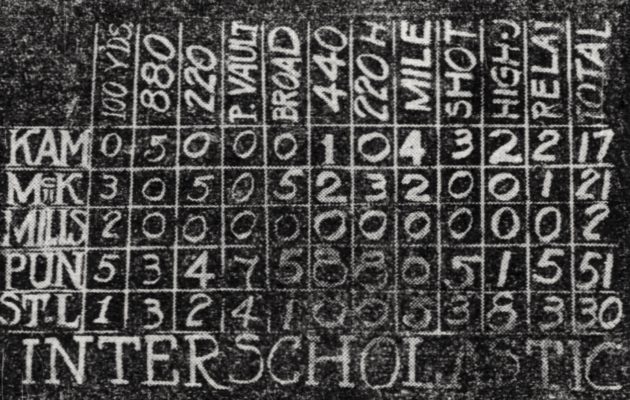 100 YDS. 880 220 P. VAULT BROAD 440 220 H MILE SHOT HIGH-J RELAY TOTAL
KAM 0 5 0 0 0 1 0 4 3 2 2 17
McK 3 0 5 0 5 2 3 2 0 0 1 21
MILLS 2 0 0 0 0 0 0 0 0 0 0 2
PUN 5 3 4 7 5 8 8 0 5 1 5 51
ST.L 1 3 2 4 1 0 0 5 3 8 3 30
INTERSCHOLASTIC